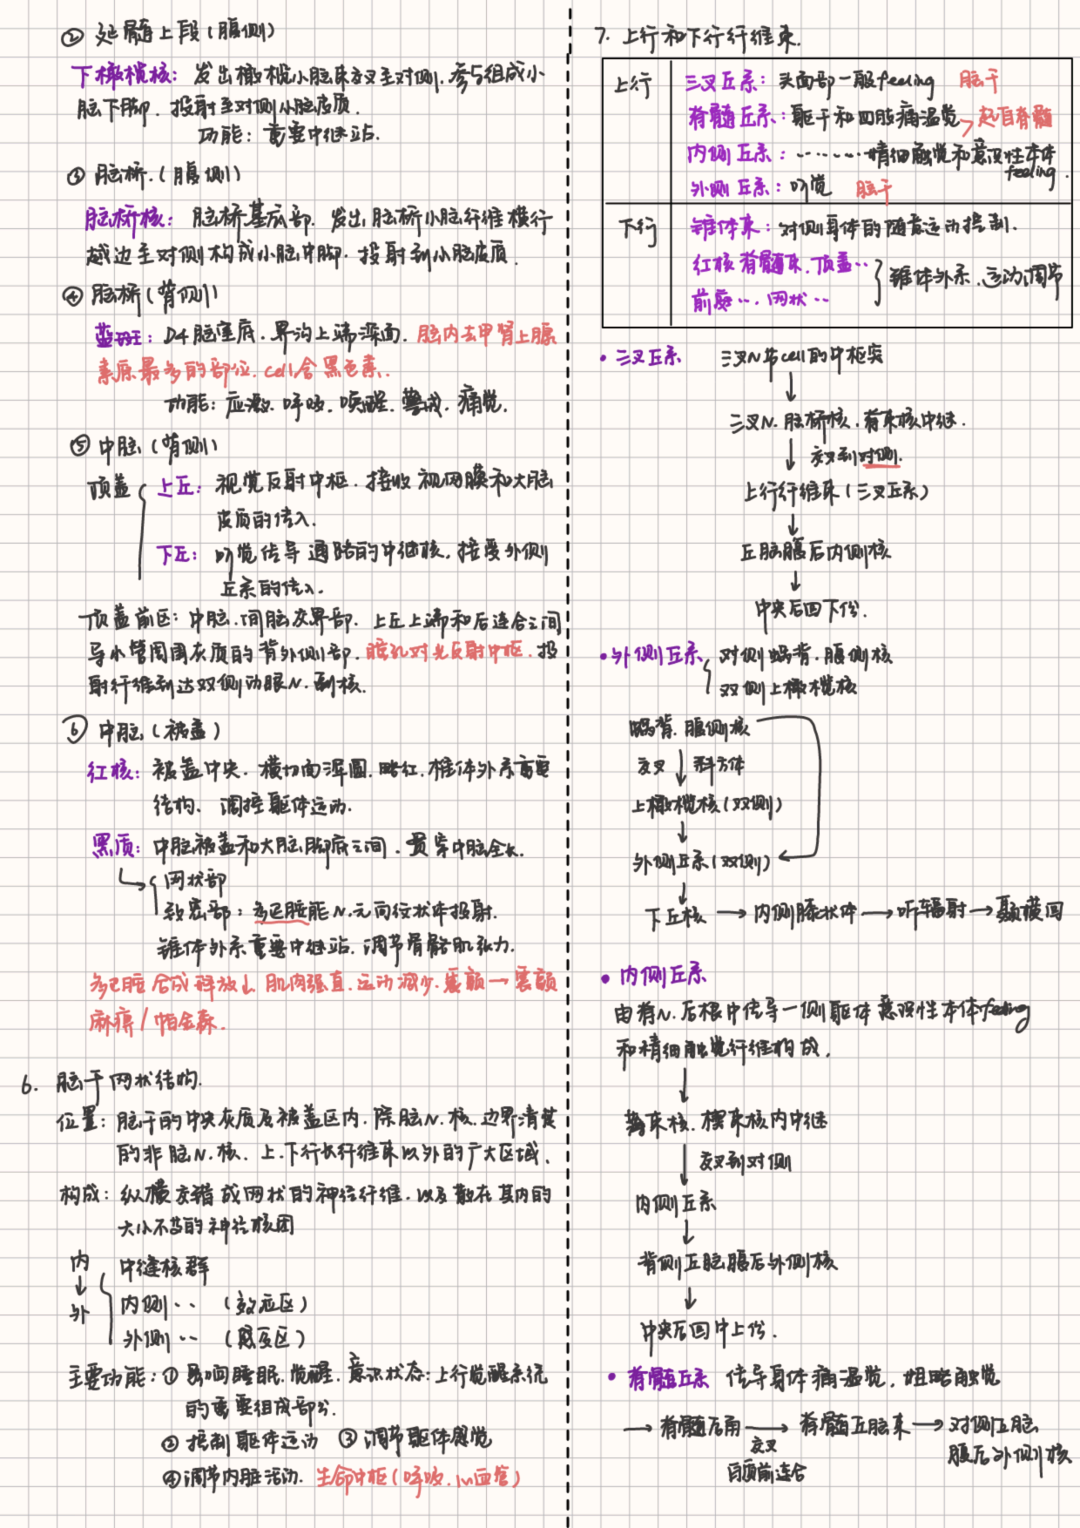 ② 延髓上段(腹侧)
下橄榄核: 发出橄榄小脑束交叉至对侧, 参与组成小
脑下脚. 投射至对侧小脑皮质.
功能: 重要中继站.
③ 脑桥.(腹侧)
脑桥核: 脑桥基底部. 发出脑桥小脑纤维横行
越边至对侧构成小脑中脚. 投射到小脑皮质.
④ 脑桥(背侧)
蓝斑: D4脑室底. 界沟上端深面. 脑内去甲肾上腺
素原最多的部位. cell含黑色素.
功能: 应激. 呼吸. 唤醒. 警戒. 痛觉.
⑤ 中脑(背侧)
顶盖 上丘: 视觉反射中枢. 接收视网膜和大脑
皮质的传入.
下丘: 听觉传导通路的中继核. 接受外侧
丘系的传入.
顶盖前区: 中脑.间脑交界部. 上丘上端和后连合之间
导水管周围灰质的背外侧部. 瞳孔对光反射中枢. 投
射纤维到达双侧动眼N.副核.
⑥ 中脑(被盖)
红核: 被盖中央. 横切面浑圆. 略红. 椎体外系重要
结构. 调控躯体运动.
黑质: 中脑被盖和大脑脚底之间. 贯穿中脑全长.
网状部
致密部: 多巴胺能N.元向纹状体投射.
锥体外系重要中继站. 调节骨骼肌张力.
多巴胺合成释放↓ 肌肉强直. 运动减少. 震颤 → 震颤
麻痹/帕金森.
6. 脑干网状结构.
位置: 脑干的中央灰质及被盖区内. 除脑N.核.边界清楚
的非脑N.核. 上.下行长纤维束以外的广大区域.
构成: 纵横交错成网状的神经纤维. 以及散在其内的
大小不等的神经核团
内 中缝核群
↓ 内侧·· (效应区)
外 外侧·· (感受区)
主要功能: ① 影响睡眠.觉醒.意识状态: 上行觉醒系统
的重要组成部分.
② 控制躯体运动 ③ 调节躯体感觉
④调节内脏活动. 生命中枢(呼吸.心血管)
7. 上行和下行纤维束.
上行 三叉丘系: 头面部一般feeling 脑干
脊髓丘系: 躯干和四肢痛温觉 → 起自脊髓
内侧丘系: ········精细触觉和意识性本体
feeling.
外侧丘系: 听觉 脑干
下行 锥体束: 对侧身体的随意运动控制.
红核脊髓束. 顶盖··
前庭··. 网状·· 锥体外系. 运动调节
• 三叉丘系 三叉N节cell的中枢突
↓
三叉N.脑桥核.脊束核中继.
↓ 交叉到对侧.
上行纤维束(三叉丘系)
↓
丘脑腹后内侧核
↓
中央后回下份.
• 外侧丘系 对侧蜗背.腹侧核
双侧上橄榄核
蜗背.腹侧核
交叉 ↓ 斜方体
上橄榄核(双侧)
↓
外侧丘系(双侧)
↓
下丘核 → 内侧膝状体 → 听辐射 → 颞横回
• 内侧丘系
由脊N.后根中传导一侧躯体意识性本体feeling
和精细触觉纤维构成.
↓
薄束核. 楔束核内中继
↓ 交叉到对侧
内侧丘系
↓
背侧丘脑腹后外侧核
↓
中央后回中上份.
• 脊髓丘系 传导身体痛温觉. 粗略触觉
→ 脊髓后角 → 脊髓丘脑束 → 对侧丘脑
交叉 腹后外侧核
白质前连合